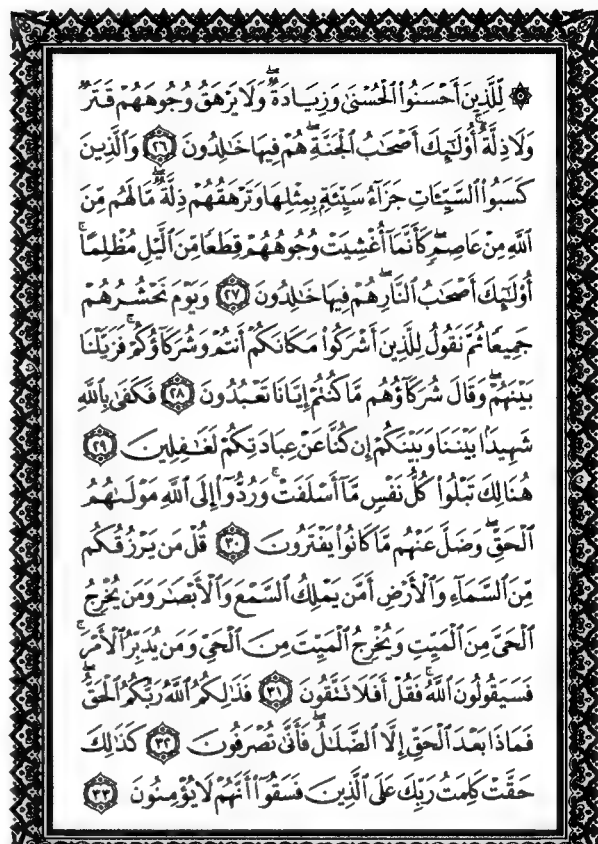 ۞ لِّلَّذِينَ أَحْسَنُوا۟ ٱلْحُسْنَىٰ وَزِيَادَةٌ ۖ وَلَا يَرْهَقُ وُجُوهَهُمْ قَتَرٌ
وَلَا ذِلَّةٌ ۚ أُو۟لَـٰٓئِكَ أَصْحَـٰبُ ٱلْجَنَّةِ ۖ هُمْ فِيهَا خَـٰلِدُونَ ﴿٢٦﴾ وَٱلَّذِينَ
كَسَبُوا۟ ٱلسَّيِّـَٔاتِ جَزَآءُ سَيِّئَةٍۭ بِمِثْلِهَا وَتَرْهَقُهُمْ ذِلَّةٌ ۖ مَّا لَهُم مِّنَ
ٱللَّهِ مِنْ عَاصِمٍ ۖ كَأَنَّمَآ أُغْشِيَتْ وُجُوهُهُمْ قِطَعًا مِّنَ ٱلَّيْلِ مُظْلِمًا ۚ
أُو۟لَـٰٓئِكَ أَصْحَـٰبُ ٱلنَّارِ ۖ هُمْ فِيهَا خَـٰلِدُونَ ﴿٢٧﴾ وَيَوْمَ نَحْشُرُهُمْ
جَمِيعًا ثُمَّ نَقُولُ لِلَّذِينَ أَشْرَكُوا۟ مَكَانَكُمْ أَنتُمْ وَشُرَكَآؤُكُمْ ۚ فَزَيَّلْنَا
بَيْنَهُمْ ۖ وَقَالَ شُرَكَآؤُهُم مَّا كُنتُمْ إِيَّانَا تَعْبُدُونَ ﴿٢٨﴾ فَكَفَىٰ بِٱللَّهِ
شَهِيدًۢا بَيْنَنَا وَبَيْنَكُمْ إِن كُنَّا عَنْ عِبَادَتِكُمْ لَغَـٰفِلِينَ ﴿٢٩﴾
هُنَالِكَ تَبْلُوا۟ كُلُّ نَفْسٍ مَّآ أَسْلَفَتْ ۚ وَرُدُّوٓا۟ إِلَى ٱللَّهِ مَوْلَىٰهُمُ
ٱلْحَقِّ ۖ وَضَلَّ عَنْهُم مَّا كَانُوا۟ يَفْتَرُونَ ﴿٣٠﴾ قُلْ مَن يَرْزُقُكُم
مِّنَ ٱلسَّمَآءِ وَٱلْأَرْضِ أَمَّن يَمْلِكُ ٱلسَّمْعَ وَٱلْأَبْصَـٰرَ وَمَن يُخْرِجُ
ٱلْحَىَّ مِنَ ٱلْمَيِّتِ وَيُخْرِجُ ٱلْمَيِّتَ مِنَ ٱلْحَىِّ وَمَن يُدَبِّرُ ٱلْأَمْرَ ۚ
فَسَيَقُولُونَ ٱللَّهُ ۚ فَقُلْ أَفَلَا تَتَّقُونَ ﴿٣١﴾ فَذَٰلِكُمُ ٱللَّهُ رَبُّكُمُ ٱلْحَقُّ ۖ
فَمَاذَا بَعْدَ ٱلْحَقِّ إِلَّا ٱلضَّلَـٰلُ ۖ فَأَنَّىٰ تُصْرَفُونَ ﴿٣٢﴾ كَذَٰلِكَ
حَقَّتْ كَلِمَتُ رَبِّكَ عَلَى ٱلَّذِينَ فَسَقُوٓا۟ أَنَّهُمْ لَا يُؤْمِنُونَ ﴿٣٣﴾